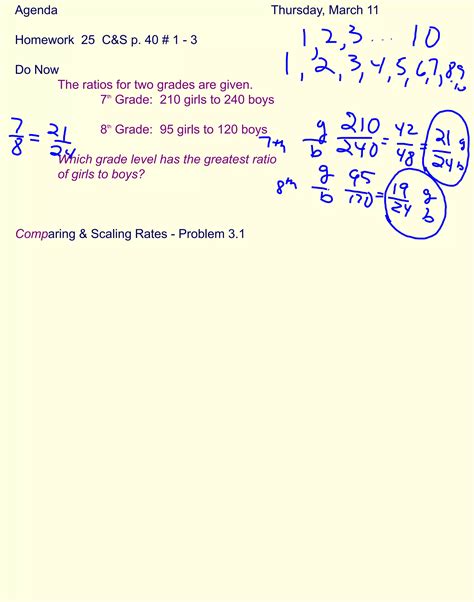 Agenda Thursday, March 11
1, 2, 3 ... 10
Homework 25 C&S p. 40 # 1 - 3
1, 2, 3, 4, 5, 6, 7, 8, 9, 10
Do Now
The ratios for two grades are given.
7th Grade: 210 girls to 240 boys
8th Grade: 95 girls to 120 boys
7/8 = 21/24
7th g/b 210/240 = 42/48 = 21/24 g/b
Which grade level has the greatest ratio
of girls to boys?
8th g/b 95/120 = 19/24 g/b
Comparing & Scaling Rates - Problem 3.1